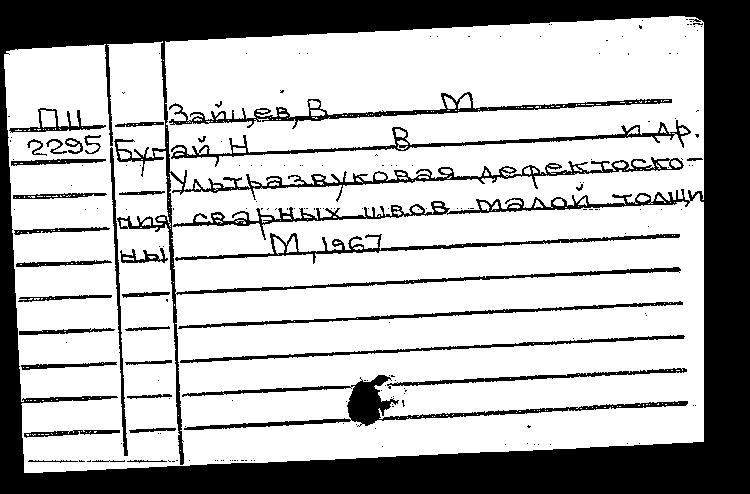 ПII Зайцев, В М
2295 Бугай, Н В и др.
Ультразвуковая дефектоско-
пия сварных швов малой толщи
ны М, 1967